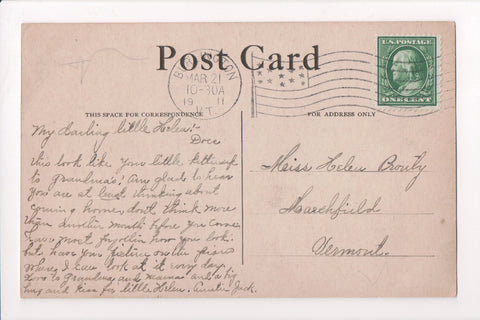 Post Card
MAR 21
10-30A
19 11
VT.
U.S. POSTAGE
ONE CENT
THIS SPACE FOR CORRESPONDENCE
FOR ADDRESS ONLY
My Darling little Helen:-
Does
this look like your little kitten up
to grandma's? Am glad to hear
you are at least thinking about
coming home, don't think more
than another month before you come
have most forgotten how you look
but have your picture on the piano
where I can look at it every day
Love to grandma and mama and a big
hug and kiss for little Helen. Auntie Jack.
Miss Helen Prouty
Marshfield
Vermont.